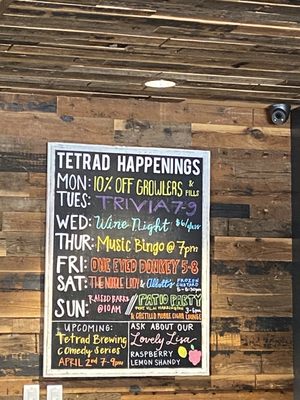 TETRAD HAPPENINGS
MON: 10% OFF GROWLERS & FILLS
TUES: TRIVIA 7-9
WED: Wine Night $6/glass
THUR: Music Bingo @ 7pm
FRI: ONE EYED DONKEY 5-8
SAT: THE NOBLE LADY & Abbott's FROZEN CUSTARD
5-8:30PM
SUN: RAISED BARRE // PATIO PARTY
@ 10AM
3-6PM
& CASTILLO MOBILE CIGAR LOUNGE
UPCOMING:
Tetrad Brewing
Comedy Series
APRIL 2nd 7-9PM
ASK ABOUT OUR
Lovely Lisa
RASPBERRY
LEMON SHANDY